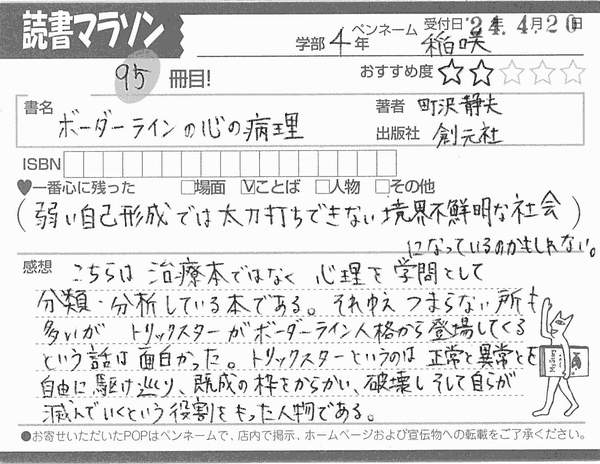 読書マラソン
学部 4 年 ペンネーム 稲咲 受付日 '24. 4月20日
95 冊目! おすすめ度 ☆☆☆☆☆
書名 ボーダーラインの心の病理
著者 町沢静夫
出版社 創元社
ISBN
♥一番心に残った □場面 ☑ことば □人物 □その他
(弱い自己形成では太刀打ちできない境界不鮮明な社会)
になっているのかもしれない。
感想 こちらは治療本ではなく 心理を学問として
分類・分析している本である。それゆえつまらない所も
多いが トリックスターがボーダーライン人格から登場してくる
という話は面白かった。トリックスターというのは正常と異常とを
自由に駆け巡り、既成の枠をからかい、破壊しそして自らが
滅んでいくという役割をもった人物である。
●お寄せいただいたPOPはペンネームで、店内で掲示、ホームページおよび宣伝物への転載をご了承ください。